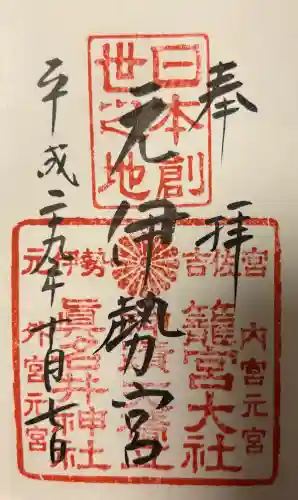 奉拝
日本創
世之地
元伊勢宮
平成二十九年十月七日
元伊勢
吉佐宮
内宮元宮
籠宮大社
眞名井神社
外宮元宮